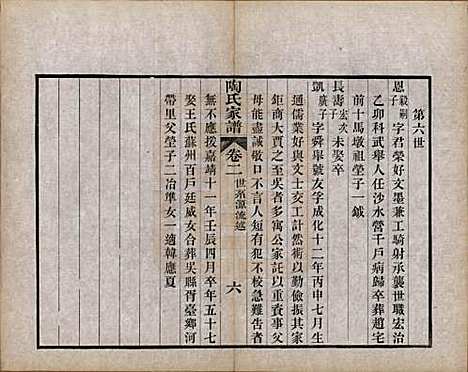 第六世
恩 毅嗣 字君榮好文墨兼工騎射承襲世職宏治
乙卯科武舉人任沙水營千戶病歸卒葬趙宅
前十馬墩祖塋子一鉞
長壽 宏次子 未娶卒
凱 廣子 字舜舉號友孚成化十二年丙申七月生
通儒業好與文士交工計然術以勤儉振其家
鉅商大賈之至吳者多寓公家託以重賚事父
母能盡誠敬口不言人短有犯不校急難告者
陶氏家譜 卷二 世系源流述 六
無不應援嘉靖十一年壬辰四月卒年五十七
娶王氏蘇州百戶廷威女合葬吳縣胥臺鄉河
帶里父塋子二冶準女一適韓應夏